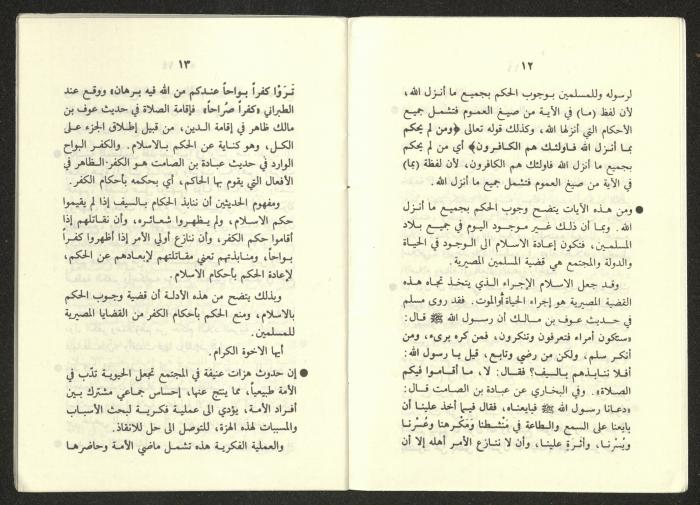 ١٢
لرسوله وللمسلمين بوجوب الحكم بجميع ما أنزل الله،
لأن لفظ (ما) في الآية من صيغ العموم فتشمل جميع
الأحكام التي أنزلها الله، وكذلك قوله تعالى ﴿ومن لم يحكم
بما أنزل الله فاولئك هم الكافرون﴾ أي من لم يحكم
بجميع ما أنزل الله فاولئك هم الكافرون، لأن لفظة (بما)
في الآية من صيغ العموم فتشمل جميع ما أنزل الله.
● ومن هذه الآيات يتضح وجوب الحكم بجميع ما أنزل
الله. وبما أن ذلك غير موجود اليوم في جميع بلاد
المسلمين، فتكون إعادة الاسلام الى الوجود في الحياة
والدولة والمجتمع هي قضية المسلمين المصيرية.
وقد جعل الاسلام الإجراء الذي يتخذ تجاه هذه
القضية المصيرية هو إجراء الحياة أوالموت. فقد روى مسلم
في حديث عوف بن مالك أن رسول الله ﷺ قال:
«ستكون أمراء فتعرفون وتنكرون، فمن كره برىء، ومن
أنكر سلم، ولكن من رضي وتابع، قيل يا رسول الله:
أفلا ننابذهم بالسيف؟ فقال: لا، ما أقاموا فيكم
الصلاة». وفي البخاري عن عبادة بن الصامت قال:
«دعانا رسول الله ﷺ فبايعناه، فقال فيما أخذ علينا أن
بايعنا على السمع والطاعة في منشطنا ومكرهنا وعُسْرنا
ويُسْرنا، وأثرة علينا، وأن لا ننازع الأمر أهله إلا أن
١٣
تَرَوْا كفراً بواحاً عندكم من الله فيه برهان» ووقع عند
الطبراني «كفراً صُراحاً» فإقامة الصلاة في حديث عوف بن
مالك ظاهر في إقامة الدين، من قبيل إطلاق الجزء على
الكل، وهو كناية عن الحكم بالاسلام. والكفر البواح
الوارد في حديث عبادة بن الصامت هو الكفر الظاهر في
الأفعال التي يقوم بها الحاكم، أي بحكمه بأحكام الكفر.
ومفهوم الحديثين أن ننابذ الحكام بالسيف إذا لم يقيموا
حكم الاسلام، ولم يظهروا شعائره، وأن نقاتلهم إذا
أقاموا حكم الكفر، وأن ننازع أولي الأمر إذا أظهروا كفراً
بواحاً، ومنابذتهم تعني مقاتلتهم لإبعادهم عن الحكم،
لإعادة الحكم بأحكام الاسلام.
وبذلك يتضح من هذه الأدلة أن قضية وجوب الحكم
بالاسلام، ومنع الحكم بأحكام الكفر من القضايا المصيرية
للمسلمين.
أيها الاخوة الكرام.
● إن حدوث هزات عنيفة في المجتمع تجعل الحيوية تدّب في
الأمة طبيعياً، مما ينتج عنها، إحساس جماعي مشترك بين
أفراد الأمة، يؤدي الى عملية فكرية لبحث الأسباب
والمسببات لهذه الهزة، للتوصل الى حل للانقاذ.
والعملية الفكرية هذه تشمل ماضي الأمة وحاضرها